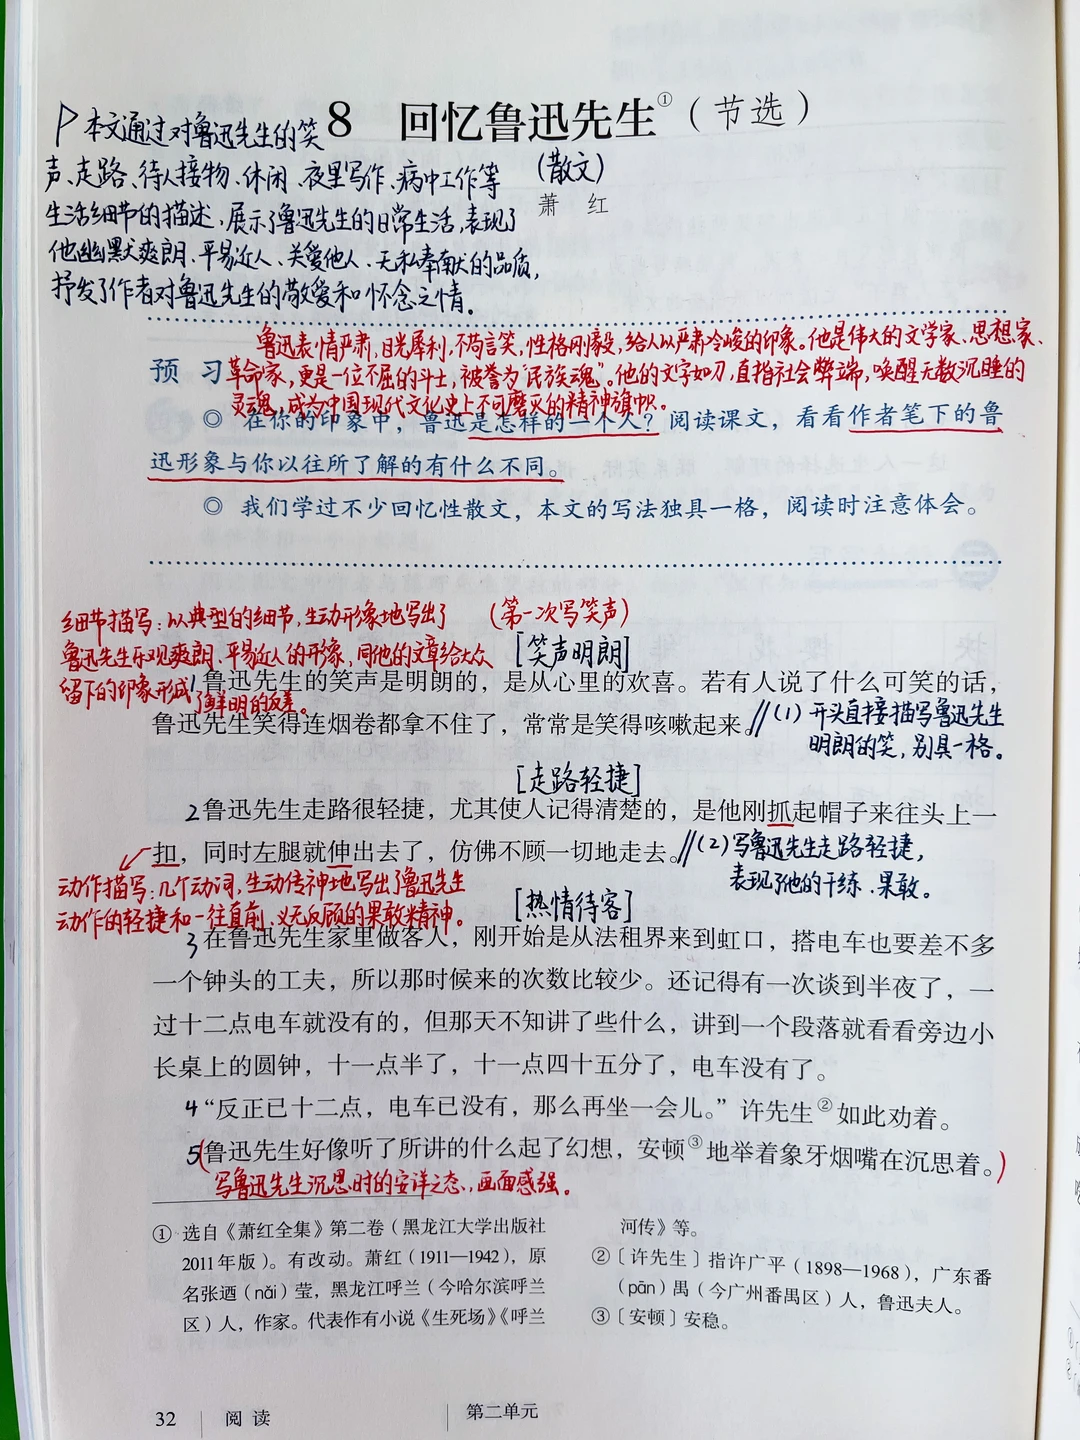 8 回忆鲁迅先生①（节选）
(散文)
萧 红
本文通过对鲁迅先生的笑
声、走路、待人接物、休闲、夜里写作、病中工作等
生活细节的描述,展示了鲁迅先生的日常生活,表现了
他幽默爽朗、平易近人、关爱他人、无私奉献的品质,
抒发了作者对鲁迅先生的敬爱和怀念之情。
鲁迅表情严肃,目光犀利,不苟言笑,性格刚毅,给人以严肃冷峻的印象。他是伟大的文学家、思想家、
革命家,更是一位不屈的斗士,被誉为“民族魂”。他的文字如刀,直指社会弊端,唤醒无数沉睡的
灵魂,成为中国现代文化史上不可磨灭的精神旗帜。
预 习
◎ 在你的印象中，鲁迅是怎样的一个人？阅读课文，看看作者笔下的鲁
迅形象与你以往所了解的有什么不同。
◎ 我们学过不少回忆性散文，本文的写法独具一格，阅读时注意体会。
细节描写:以典型的细节,生动形象地写出了
鲁迅先生乐观爽朗、平易近人的形象,同他的文章给大众
留下的印象形成了鲜明的反差。
(第一次写笑声)
[笑声明朗]
1 鲁迅先生的笑声是明朗的，是从心里的欢喜。若有人说了什么可笑的话，
鲁迅先生笑得连烟卷都拿不住了，常常是笑得咳嗽起来。
//(1) 开头直接描写鲁迅先生
明朗的笑,别具一格。
[走路轻捷]
2 鲁迅先生走路很轻捷，尤其使人记得清楚的，是他刚抓起帽子来往头上一
扣，同时左腿就伸出去了，仿佛不顾一切地走去。
//(2) 写鲁迅先生走路轻捷,
表现了他的干练、果敢。
动作描写:几个动词,生动传神地写出了鲁迅先生
动作的轻捷和一往直前、义无反顾的果敢精神。
[热情待客]
3 在鲁迅先生家里做客人，刚开始是从法租界来到虹口，搭电车也要差不多
一个钟头的工夫，所以那时候来的次数比较少。还记得有一次谈到半夜了，一
过十二点电车就没有的，但那天不知讲了些什么，讲到一个段落就看看旁边小
长桌上的圆钟，十一点半了，十一点四十五分了，电车没有了。
4 “反正已十二点，电车已没有，那么再坐一会儿。”许先生②如此劝着。
5 (鲁迅先生好像听了所讲的什么起了幻想，安顿③地举着象牙烟嘴在沉思着。)
写鲁迅先生沉思时的安详之态,画面感强。
① 选自《萧红全集》第二卷（黑龙江大学出版社
2011年版）。有改动。萧红（1911—1942），原
名张迺（nǎi）莹，黑龙江呼兰（今哈尔滨呼兰
区）人，作家。代表作有小说《生死场》《呼兰
河传》等。
②〔许先生〕指许广平（1898—1968），广东番
（pān）禺（今广州番禺区）人，鲁迅夫人。
③〔安顿〕安稳。
32 阅 读 第二单元